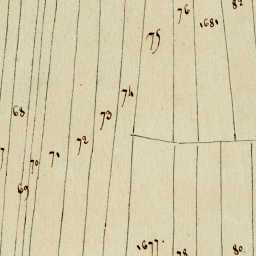 82
76
·681
75
74
68
73
72
71
70
69
·677·
78
80